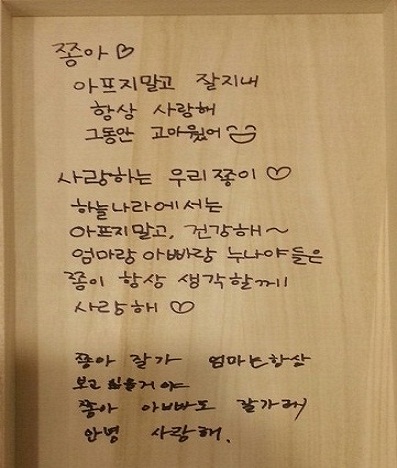 쫑아♡
아프지말고 잘지내
항상 사랑해
그동안 고마웠어
사랑하는 우리쫑이♡
하늘나라에서는
아프지말고, 건강해~
엄마랑 아빠랑 누나야들은
쫑이 항상 생각할께!
사랑해 ♡
쫑아 잘가 엄마는항상
보고 싶을거야
쫑아 아빠도 잘가래
안녕 사랑해.